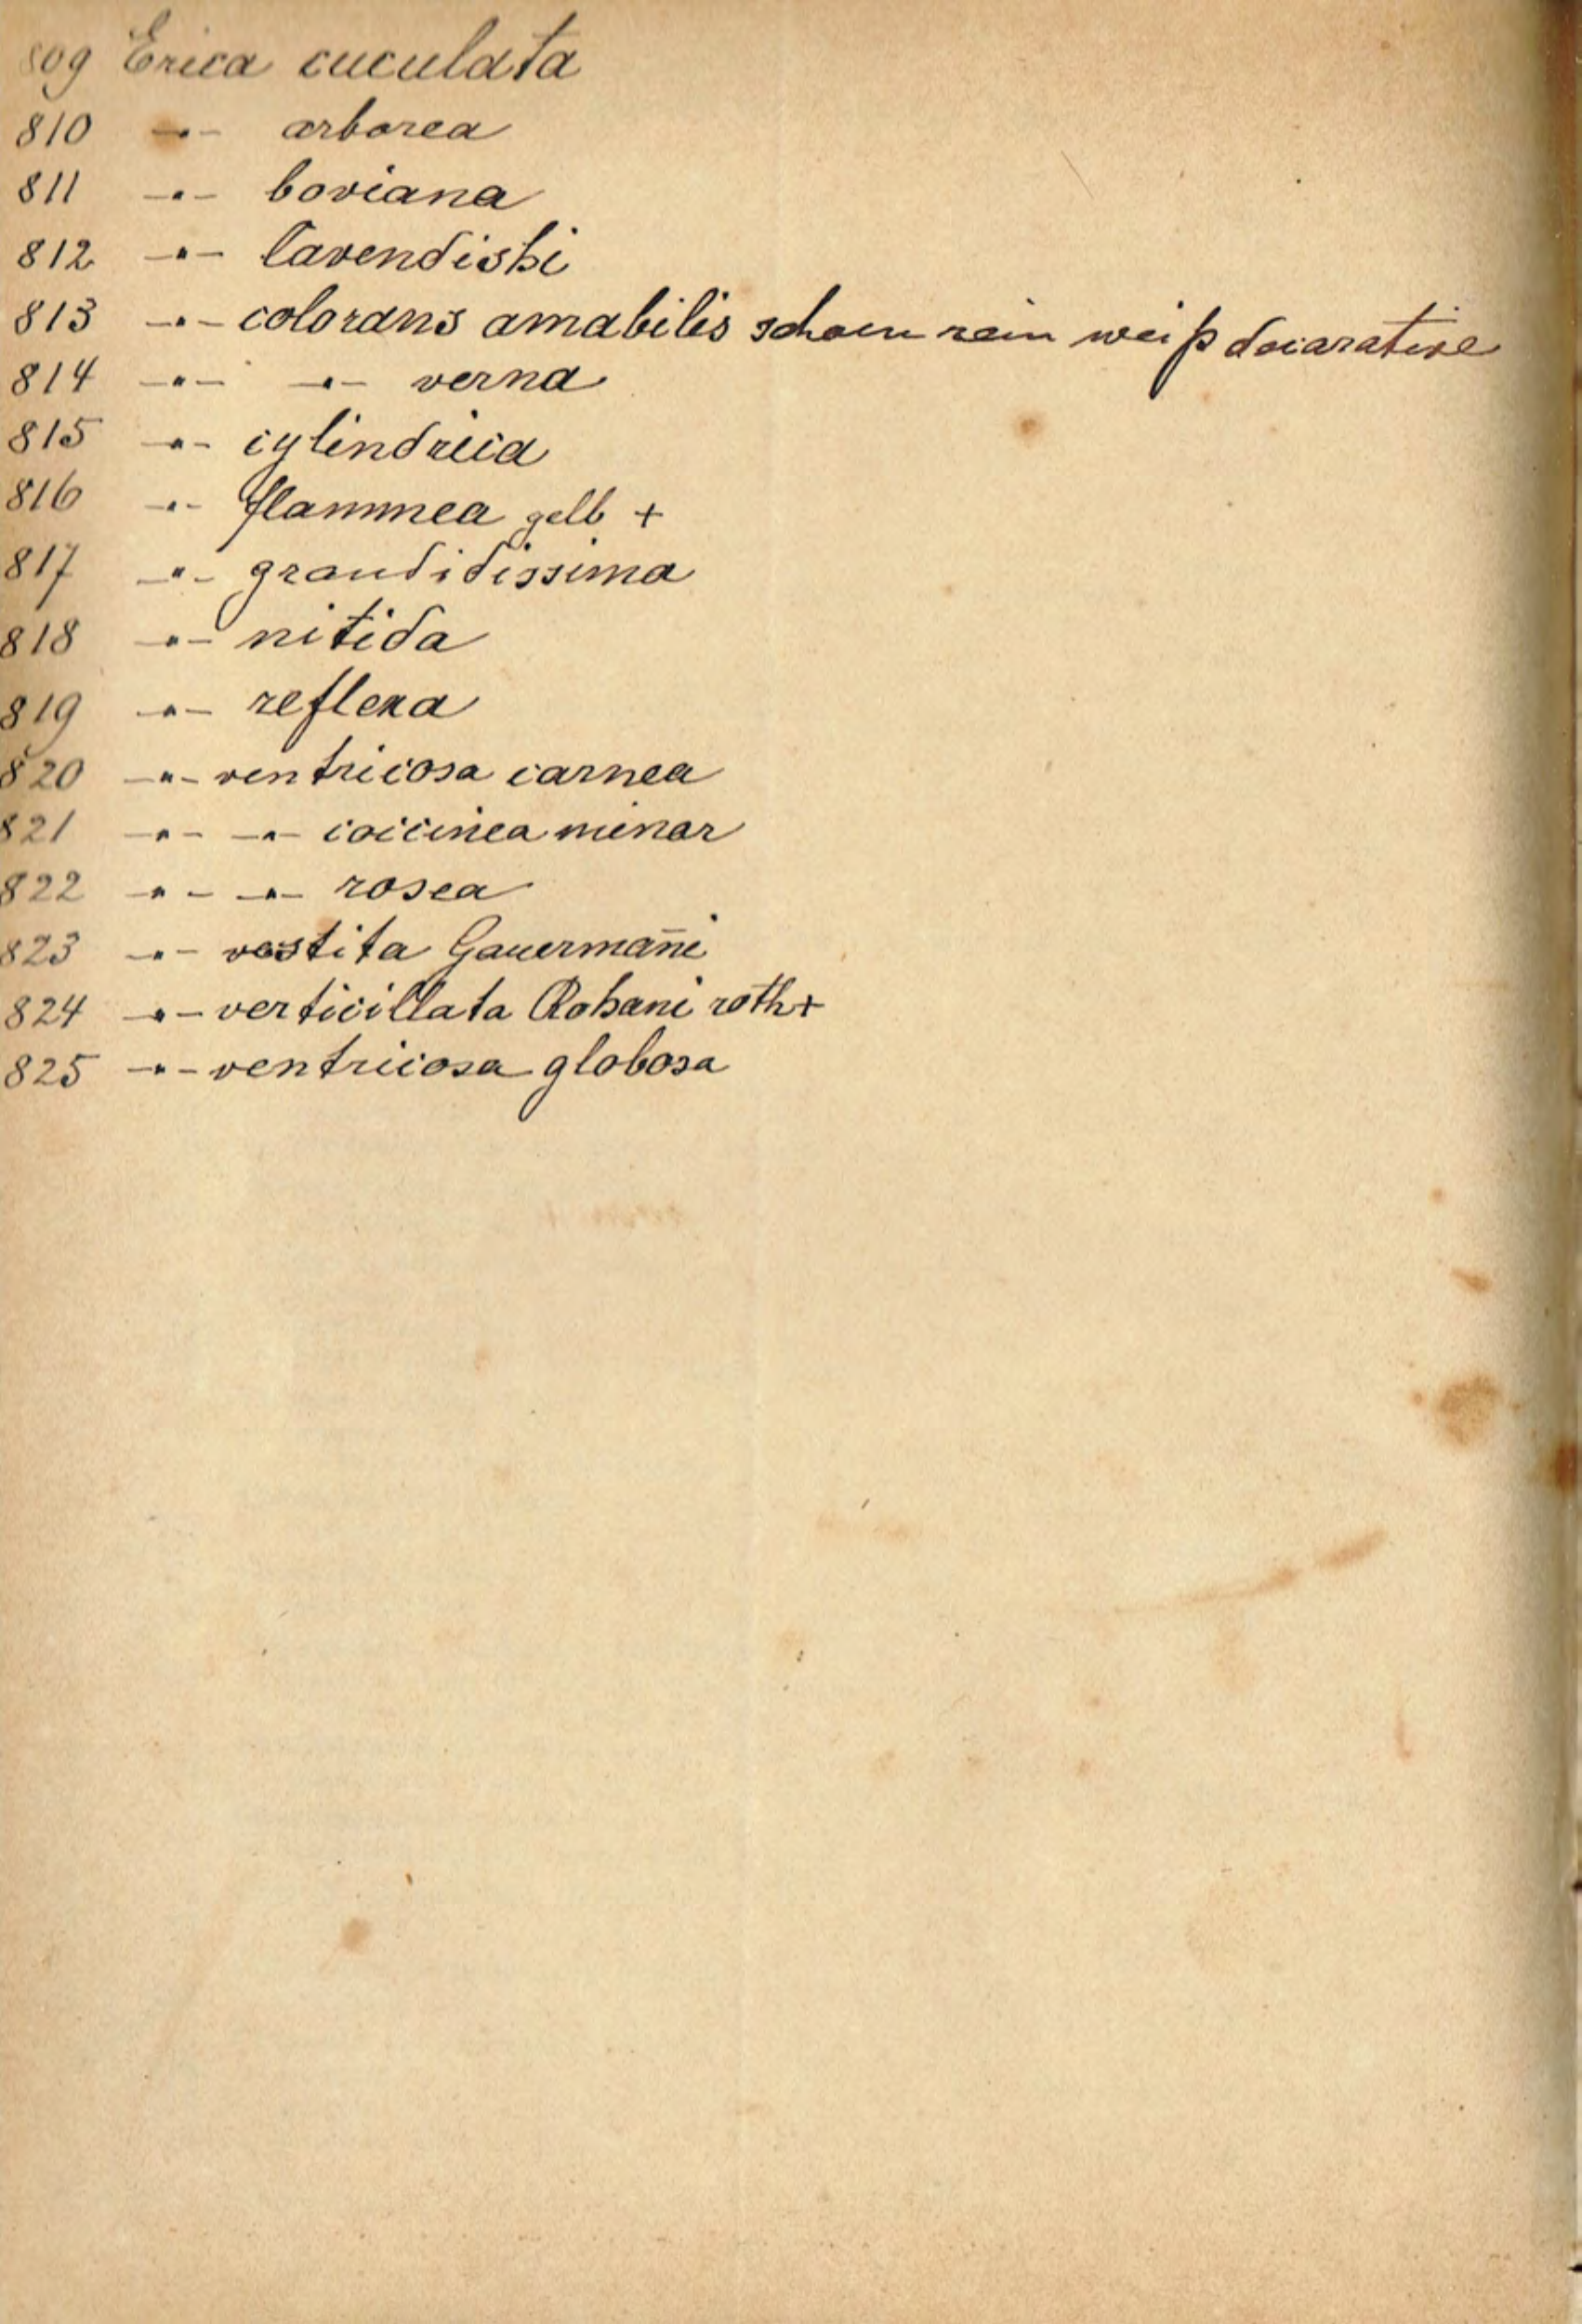 809 Erica cuculata
810 -"- arborea
811 -"- boviana
812 -"- Cavendishi
813 -"- colorans amabilis schoen rein weiß decorative
814 -"- -"- verna
815 -"- cylindrica
816 -"- flammea gelb +
817 -"- grandidissima
818 -"- nitida
819 -"- reflexa
820 -"- ventricosa carnea
821 -"- -"- coccinea minor
822 -"- -"- rosea
823 -"- vestita Gauermañi
824 -"- verticillata Rohani roth +
825 -"- ventricosa globosa